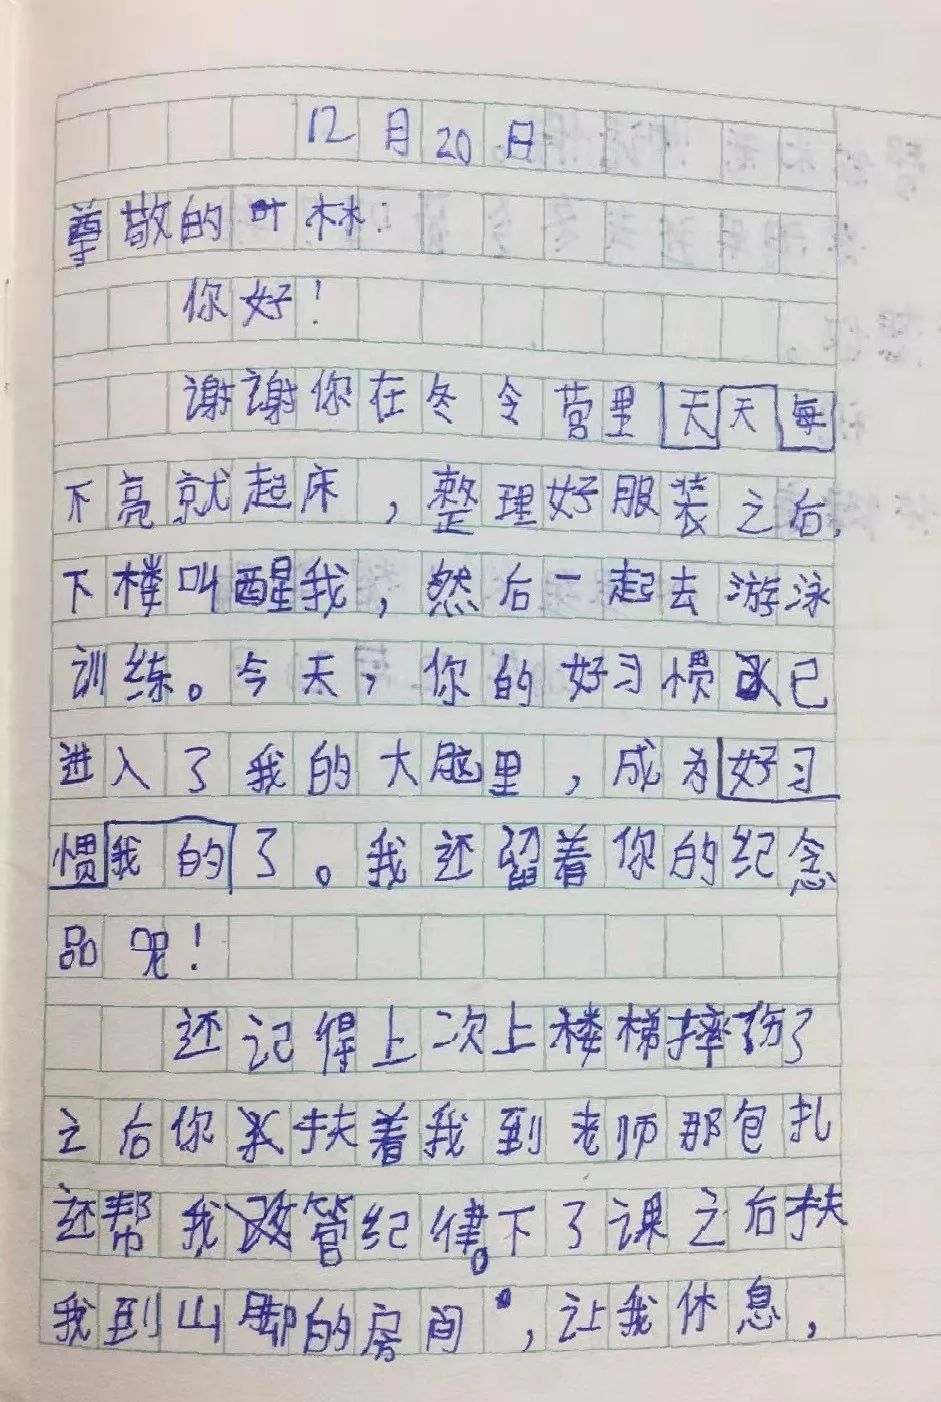 12月20日
尊敬的叶林:
你好!
谢谢你在冬令营里天天每
下亮就起床,整理好服装之后,
下楼叫醒我,然后一起去游泳
训练。今天,你的好习惯已
进入了我的大脑里,成为好习
惯我的了。我还留着你的纪念
品呢!
还记得上次上楼梯摔伤了
之后你扶着我到老师那包扎
还帮我管纪律。下了课之后扶
我到山脚的房间,让我休息,